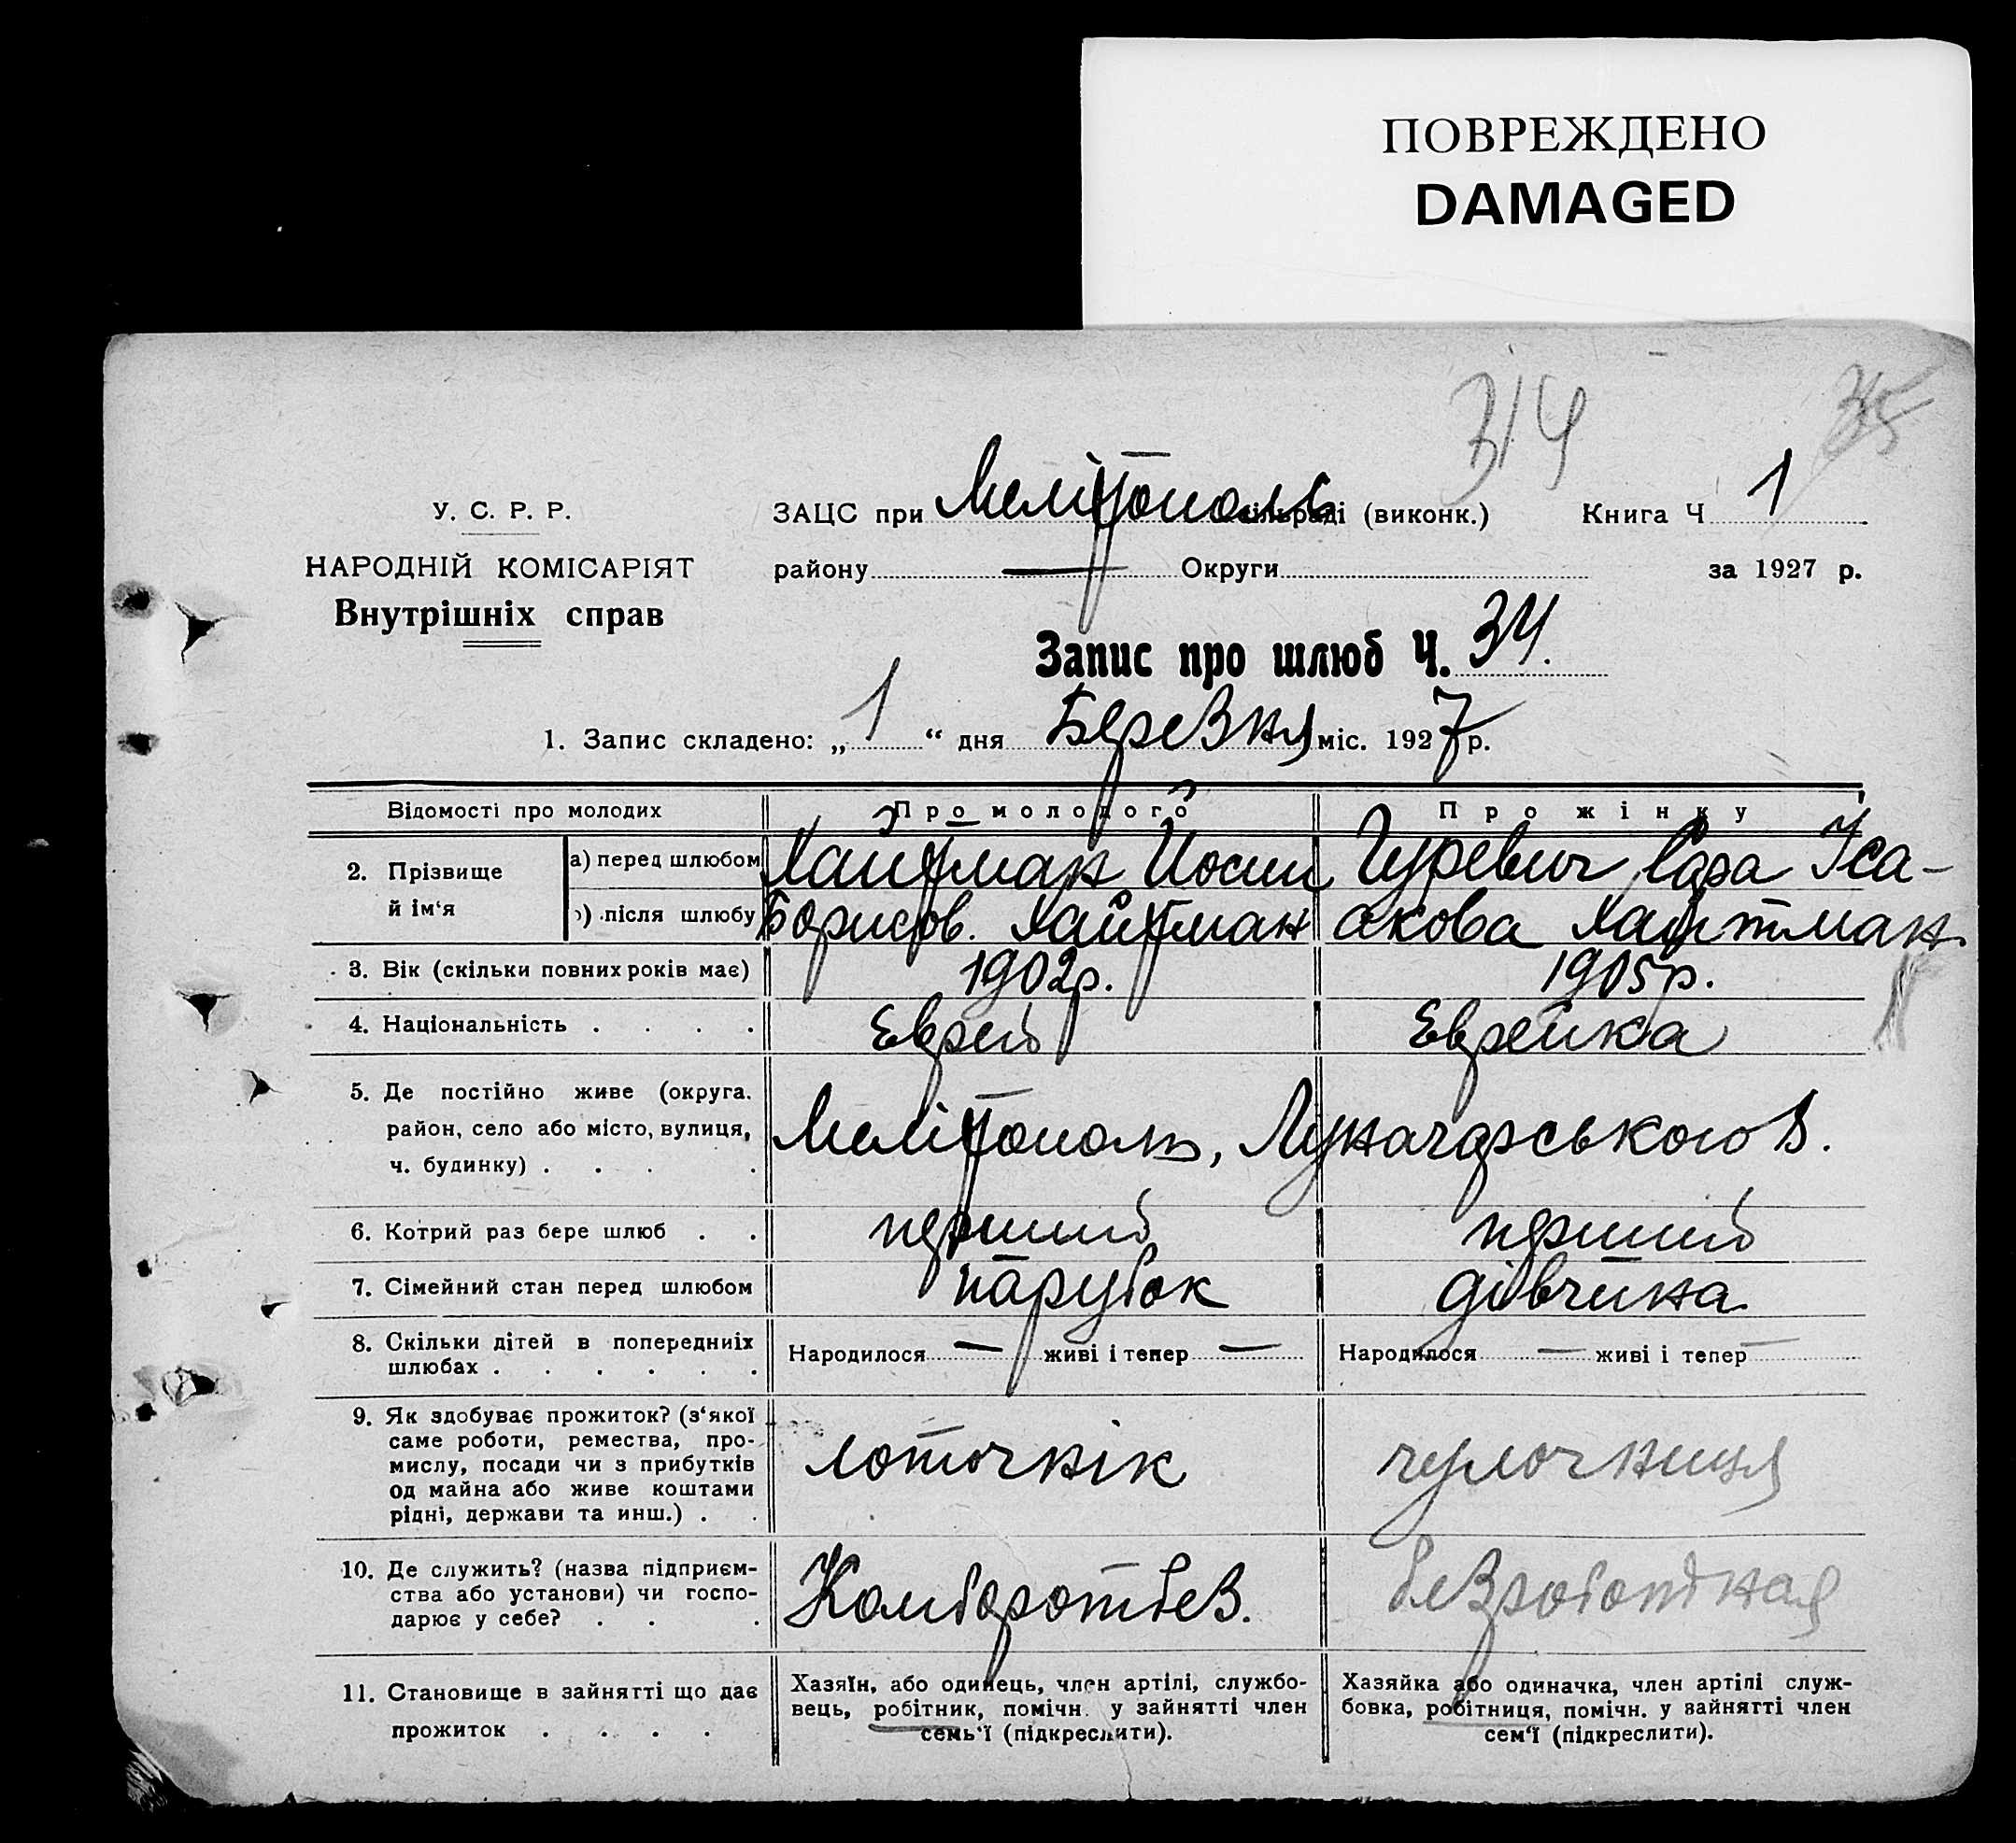 ПОВРЕЖДЕНО
DAMAGED
314 35
У. С. Р. Р.
НАРОДНІЙ КОМІСАРІЯТ
Внутрішніх справ
ЗАЦС при Мелітополь сільраді (виконк.) Книга Ч 1
району — Округи за 1927 р.
Запис про шлюб Ч. 34.
1. Запис складено: „ 1 “ дня Березня міс. 1927 р.
Відомості про молодих Про молодого Про жінку
2. Прізвище й ім‘я
а) перед шлюбом Хайтман Йосип Гуревич Сара Іса-
б) після шлюбу Борисов. Хайтман акова Хайтман
3. Вік (скільки повних років має) 1902р. 1905р.
4. Національність . . . . Еврей Еврейка
5. Де постійно живе (округа.
район, село або місто, вулиця,
ч. будинку) . . . . Мелітополь, Луначарського
6. Котрий раз бере шлюб . . перший перший
7. Сімейний стан перед шлюбом парубок дівчина
8. Скільки дітей в попередниіх
шлюбах . . . . . . Народилося — живі і тепер — Народилося — живі і тепер —
9. Як здобуває прожиток? (з‘якої
саме роботи, ремества, про-
мислу, посади чи з прибутків
од майна або живе коштами
рідні, держави та инш.) . . лоточнік чулочниця
10. Де служить? (назва підприєм-
ства або установи) чи госпо-
дарює у себе? . . . Комборотбез. безроботная
11. Становище в зайнятті що дає
прожиток . . . .
Хазяїн, або одинець, член артілі, службо-
вець, робітник, помічн. у зайнятті член
семь‘ї (підкреслити).
Хазяйка або одиначка, член артілі служ-
бовка, робітниця, помічн. у зайнятті член
сем‘ї (підкреслити).